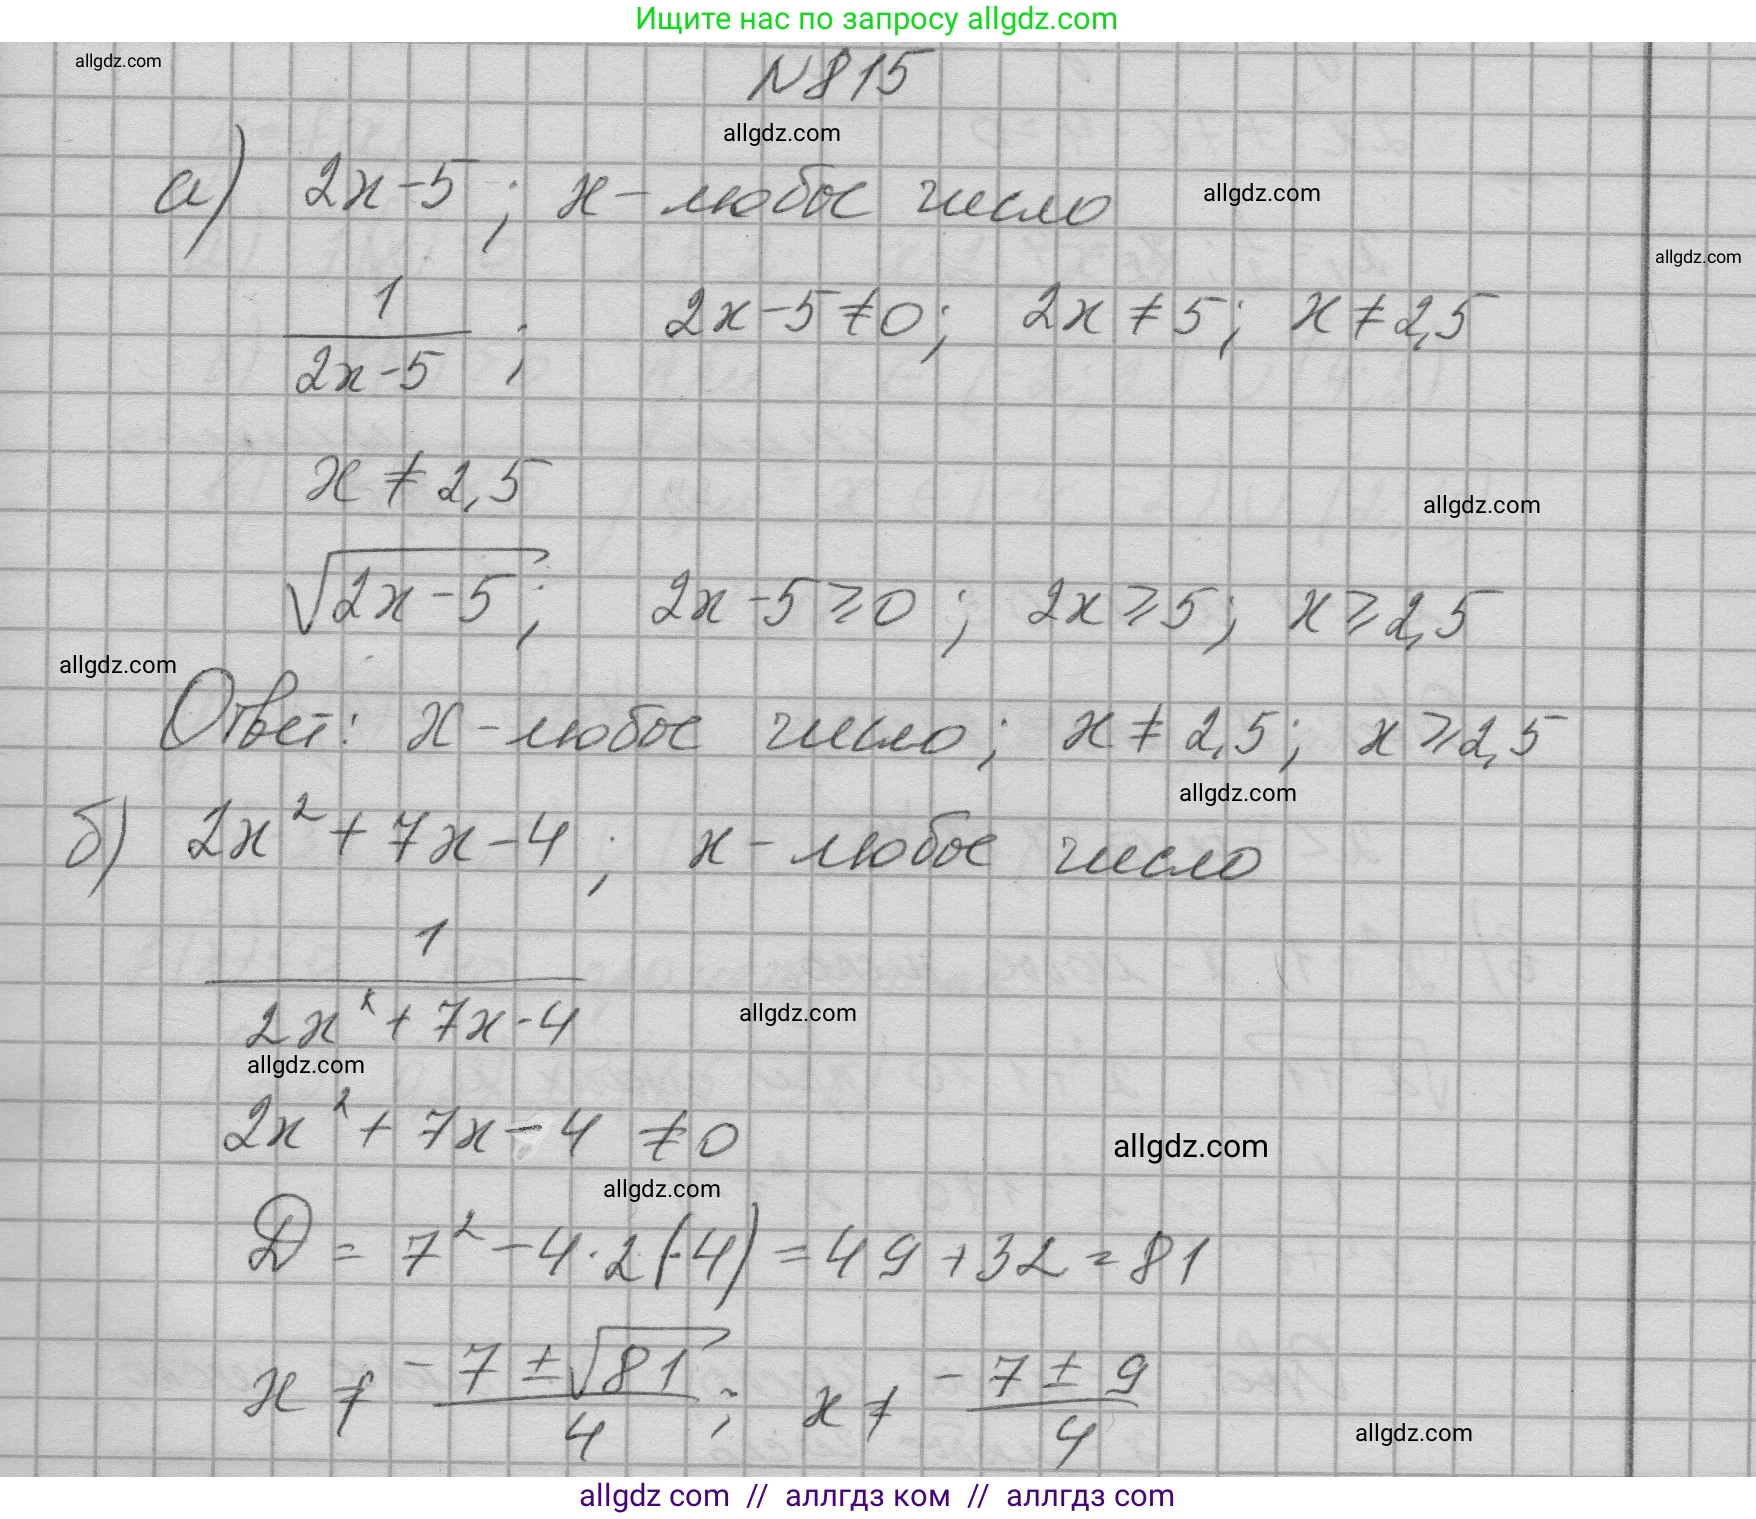 Ищите нас по запросу allgdz.com
allgdz.com
N815
allgdz.com
а) 2x-5; x - любое число
allgdz.com
allgdz.com
1/(2x-5); 2x-5≠0; 2x≠5; x≠2,5
x≠2,5
allgdz.com
√(2x-5); 2x-5⩾0; 2x⩾5; x⩾2,5
allgdz.com
Ответ: x - любое число; x≠2,5; x⩾2,5
allgdz.com
б) 2x²+7x-4; x - любое число
1/(2x²+7x-4)
allgdz.com
allgdz.com
2x²+7x-4≠0
allgdz.com
allgdz.com
D = 7²-4·2(-4)=49+32=81
x≠(-7±√81)/4; x≠(-7±9)/4
allgdz.com
allgdz com // аллгдз ком // аллгдз com